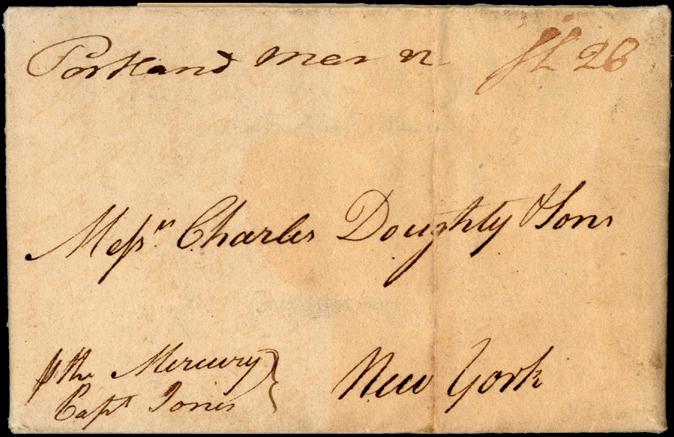 Portland Mar 12 Sh 26
Messrs Charles Doughty & Sons
⅌ the Mercury
Capt Jones
New York